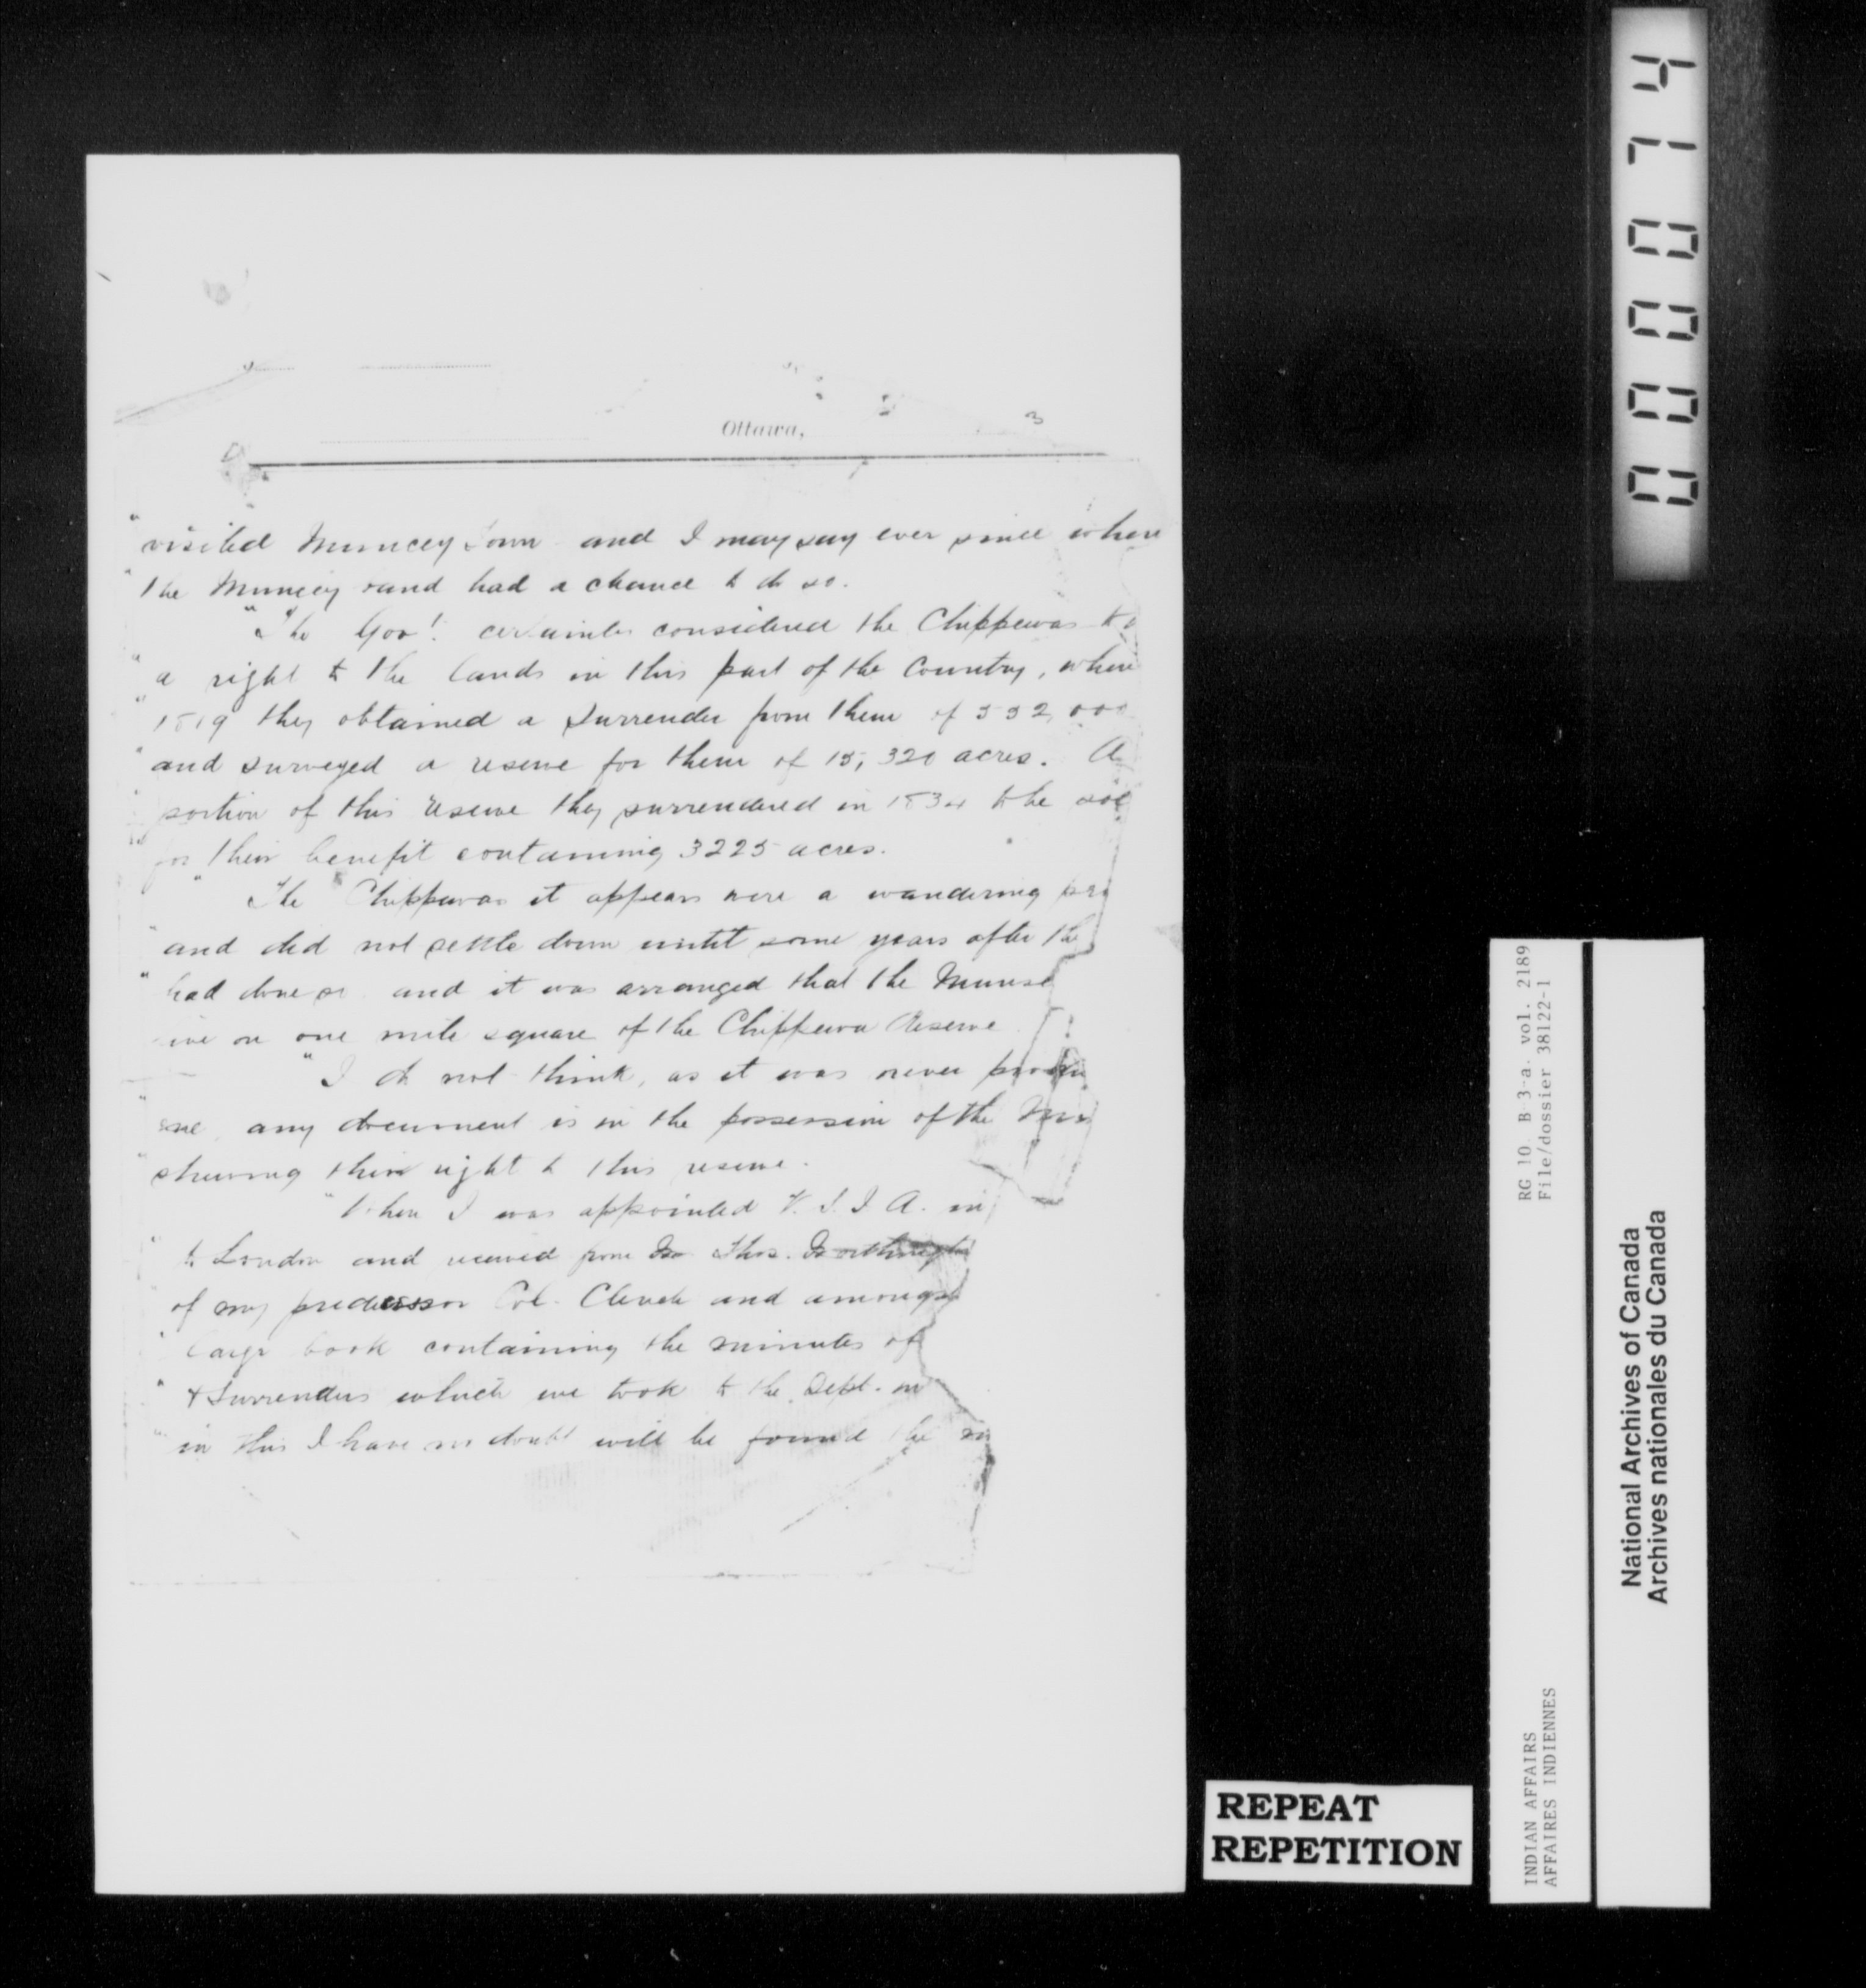 Ottawa,
3
" visited Muncey Town and I may say ever since when
" the Muncey Band had a chance to do so.
" The Gov't. certainly considered the Chippewas to
" a right to the lands in this part of the Country, when
" 1819 they obtained a surrender from them of 552,000
" and surveyed a reserve for them of 15,320 acres. A
portion of this reserve they surrendered in 1834 to be sol
for their benefit containing 3225 acres.
" The Chippewas it appears were a wandering
" and did not settle down until some years after the
" had done so and it was arranged that the Munse
live on one mile square of the Chippewa Reserve
" I do not think, as it was never
me any document is in the possession of the
shewing their right to this reserve.
" When I was appointed V. S. I. A. in
to London and received from Thos.
of my predecessor Col. Clench and amongst
large book containing the minutes of
" & Surrenders which we took to the Dept. in
" in this I have no doubt will be found the
REPEAT
REPETITION
INDIAN AFFAIRS
AFFAIRES INDIENNES
RG 10 B-3-a. vol. 2189
File/dossier 38122-1
National Archives of Canada
Archives nationales du Canada
000074